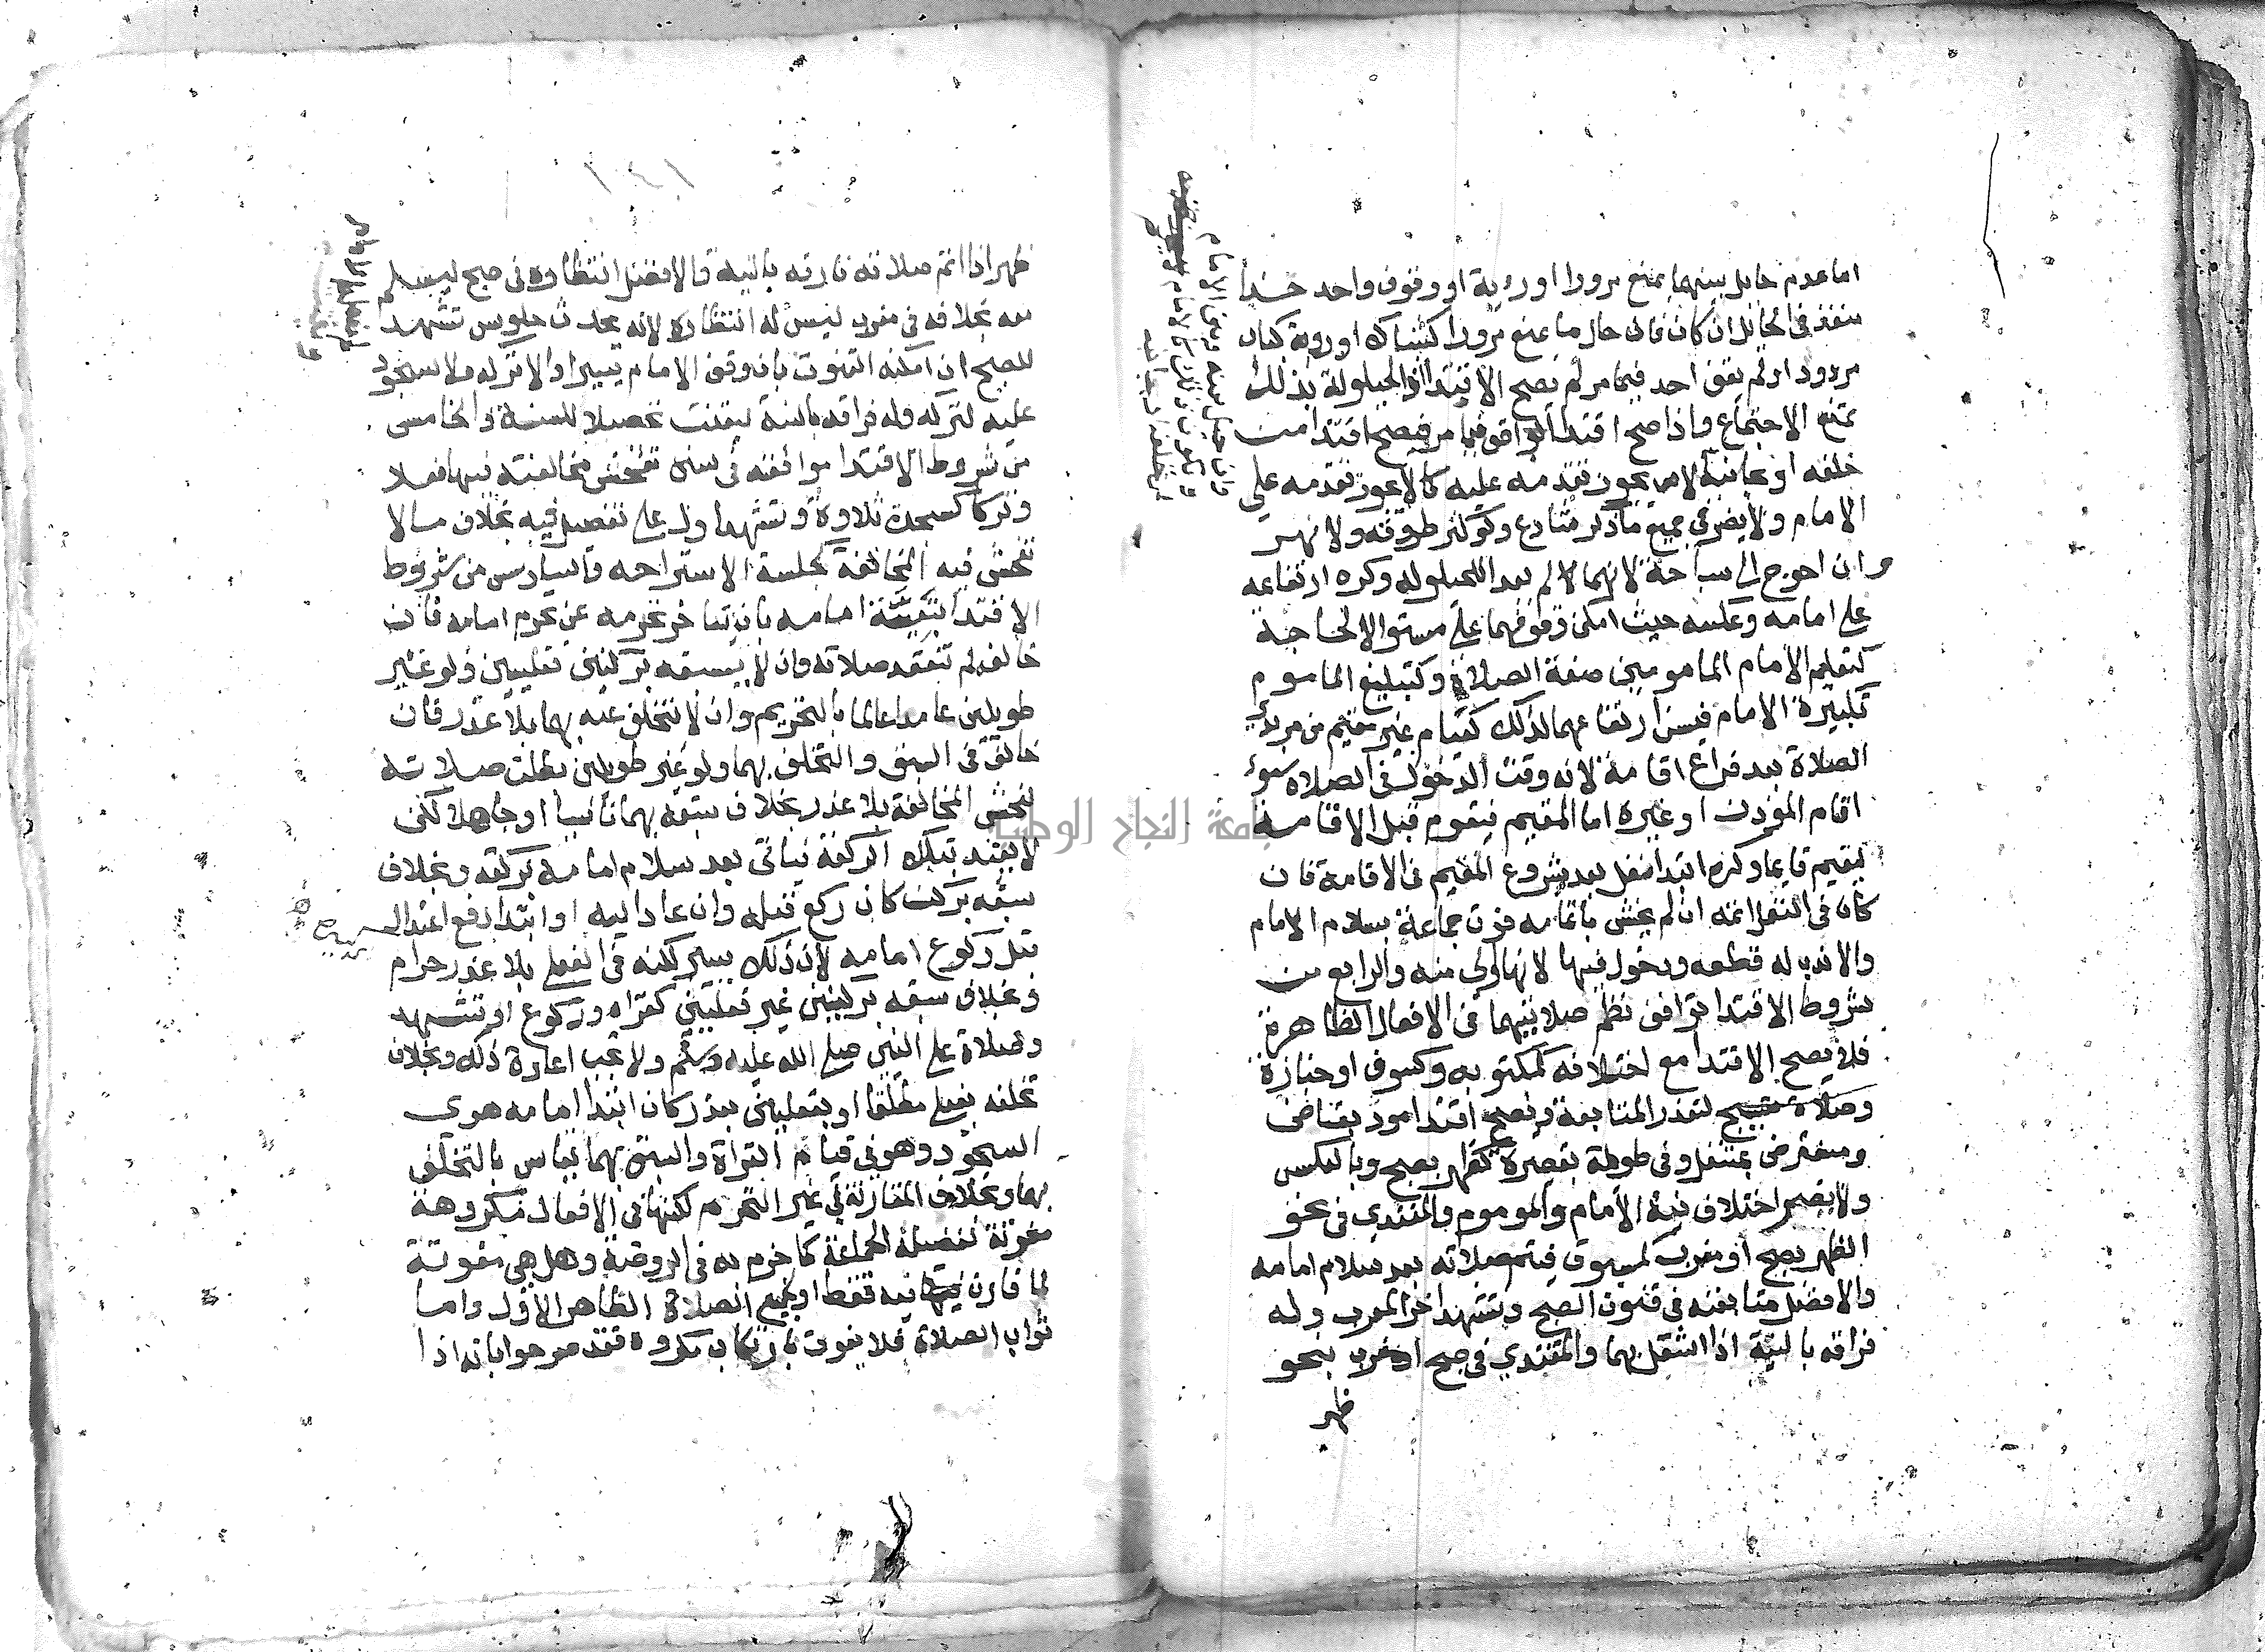 اما عدم حايل بينهما يمنع مرورا او روية او وقوف واحد حذا
منفذ في الحايل ان كان فان حال ما يمنع مرورا كشباك او روية كباب
مردود او لم يقف احد فيما مر لم يصح الاقتدا اذ الحيلولة بذلك
تمنع الاجتماع واذا صح اقتدا الواقف فيما مر فيصح اقتدا من
خلفه او بجانبه لا من يجوز تقدمه عليه كما لا يجوز تقدمه على
الامام ولا يضر في جميع ما ذكر شارع ولو كثر طروقه ولا نهر
وان احوج الى سباحة لانهما لم يعدا للحيلولة وكره ارتفاعه
على امامه وعكسه حيث امكن وقوفهما على مستو الا لحاجة
كتعليم الامام المامومين صفة الصلاة وكتبليغ الماموم
تكبيرة الامام فيسن ارتفاعهما لذلك كقيام غير مقيم من مريد
الصلاة بعد فراغ اقامة لانه وقت الدخول في الصلاة سوء
اقام الموذن او غيره اما المقيم فيقوم قبل الاقامة
ليقيم قايما وكره ابتدا نفل بعد شروع المقيم في الاقامة فان
كان في النفل اتمه ان لم يخش باتمامه فوت جماعة بسلام الامام
والا ندب له قطعه ودخول فيها لانها اولى منه والرابع من
شروط الاقتدا توافق نظم صلاتيهما في الافعال الظاهرة
فلا يصح الاقتدا مع اختلافه كمكتوبه وكسوف او جنازة
وصلاة تسبيح لتعذر المتابعة ويصح اقتدا مود بقاض
ومفترض بمتنفل وفي طويلة بقصيرة كظهر بصبح وبالعكس
ولا يضر اختلاف نية الامام والموموم والمقتدي في نحو
الظهر بصبح او مغرب كمسبوق فيتم صلاته بعد سلام امامه
والافضل متابعته في قنوت الصبح وتشهد اخر المغرب وله
فراقه بالنية اذا اشتغل بهما والمقتدي في صبح او مغرب بنحو
ظهر
١٤١
ظهر اذا اتم صلاته فارقه بالنية والافضل انتظاره في صبح ليسلم
معه بخلافه في مغرب ليس له انتظاره لانه يحدث جلوس تشهد
للصبح ان امكنه القنوت بان وقف الامام يسيرا والا تركه ولا سجود
عليه لتركه وله فراقه بالنية ليقنت تحصيلا للسنة والخامس
من شروط الاقتدا موافقته في سنن تفحش مخالفته فيها فعلا
وتركا كسجدة تلاوة وتشهد اول على تفصيل فيه بخلاف ما لا
تفحش فيه المخالفة كجلسة الاستراحه والسادس من شروط
الاقتدا تبعية امامه بان يتاخر تحرمه عن تحرم امامه فان
خالف لم تنعقد صلاته وان لا يسبقه بركنين فعليين ولو غير
طويلين عامدا عالما بالتحريم وان لا يتخلف عنه بهما بلا عذر فان
خالف في السبق والتخلف بهما ولو غير طويلين بطلت صلاته
لفحش المخالفة بلا عذر بخلاف سبقه بهما ناسيا او جاهلا لكن
لا يعتد بتلك الركعة فياتي بعد سلام امامه بركعة وبخلاف
سبقه بركن كان ركع قبله وان عاد اليه او ابتدا رفع اعتدال
قبل ركوع امامه لان ذلك يسير لكنه في الفعلي بلا عذر حرام
وبخلاف سبقه بركنين غير فعليين كقراه وركوع او تشهد
وصلاة على النبي صلى الله عليه وسلم ولا تجب اعادة ذلك وبخلاف
تخلفه بفعلي مطلقا او بفعليين بعذر كان ابتدا امامه هوى
السجود وهو في قيام القراة والسبق بهما يقاس بالتخلف
بهما وبخلاف المقارنة في غير التحرم لكنها في الافعال مكروهة
مفوتة لفضيلة الجماعة كما جزم به في الروضة وهل هي مفوتة
لما قارن فيه فقط او لجميع الصلاة الظاهر الاول واما
ثواب الصلاة فلا يفوت بارتكاب مكروه فقد صرحوا بانه اذا
جامعة النجاح الوطنية